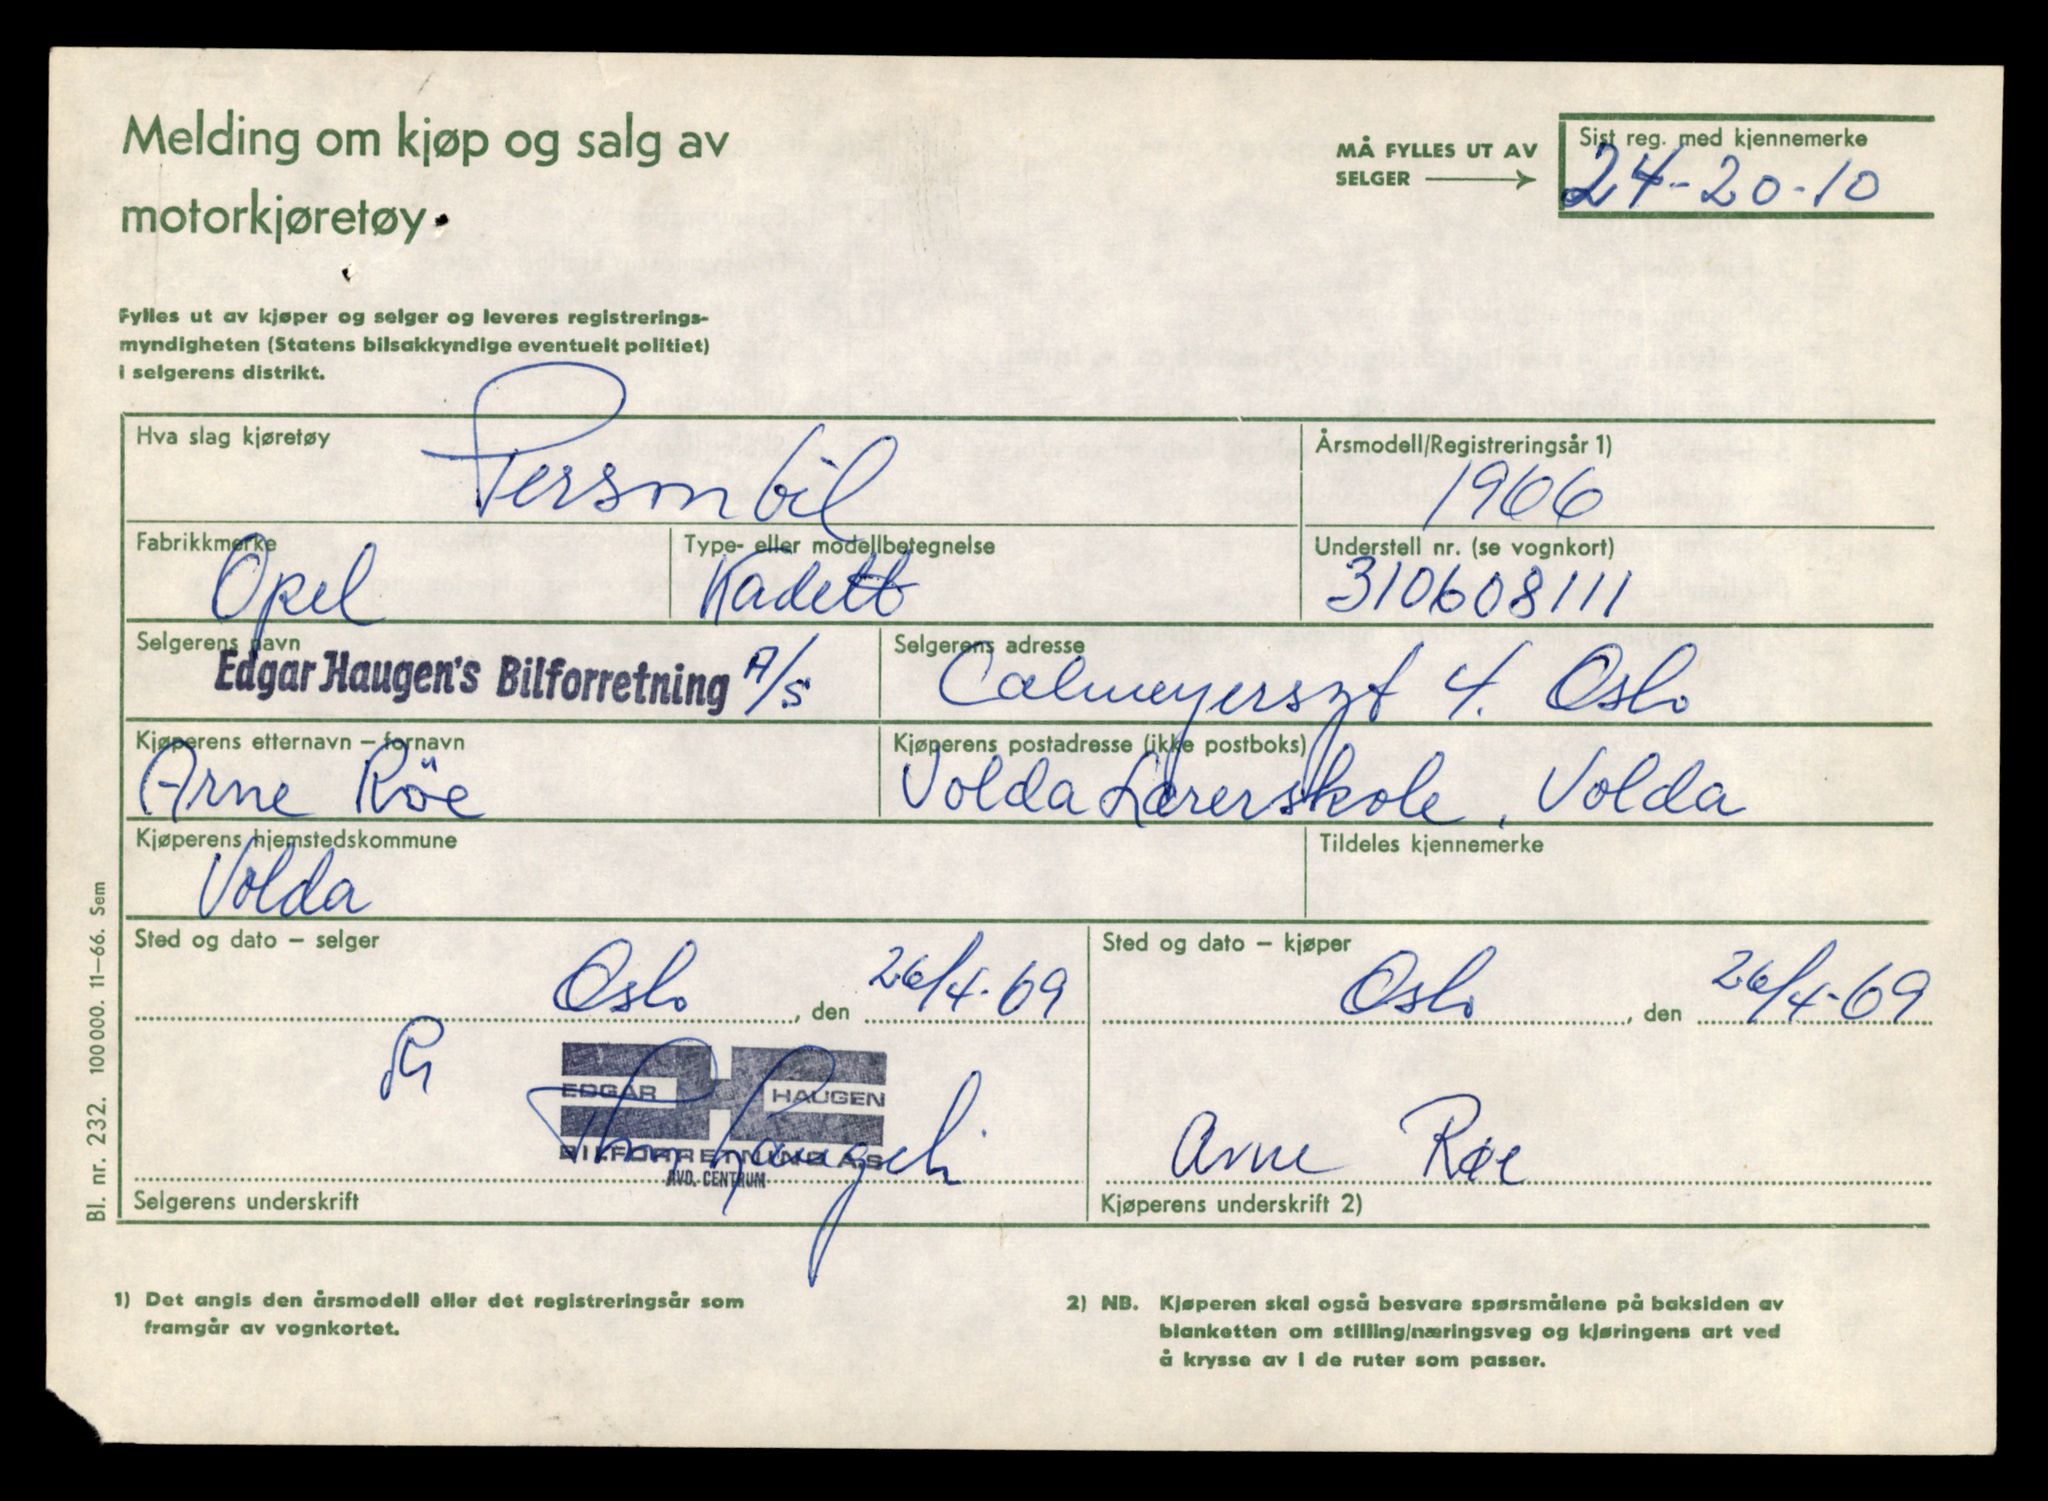 Melding om kjøp og salg av
motorkjøretøy
MÅ FYLLES UT AV
SELGER
Sist reg. med kjennemerke
24-20-10
Fylles ut av kjøper og selger og leveres registrerings-
myndigheten (Statens bilsakkyndige eventuelt politiet)
i selgerens distrikt.
Hva slag kjøretøy
Personbil
Årsmodell/Registreringsår 1)
1966
Fabrikkmerke
Opel
Type- eller modellbetegnelse
Kadett
Understell nr. (se vognkort)
310608111
Selgerens navn
Edgar Haugen's Bilforretning A/S
Selgerens adresse
Calmeyersgt 4. Oslo
Kjøperens etternavn – fornavn
Arne Röe
Kjøperens postadresse (ikke postboks)
Volda Lærerskole, Volda
Kjøperens hjemstedskommune
Volda
Tildeles kjennemerke
Sted og dato – selger
Oslo, den 26/4-69
Sted og dato – kjøper
Oslo, den 26/4-69
EDGAR HAUGEN
BILFORRETNING A.S
AVD. CENTRUM
Selgerens underskrift
Arne Røe
Kjøperens underskrift 2)
Bl. nr. 232. 100 000. 11–66. Sem
1) Det angis den årsmodell eller det registreringsår som
framgår av vognkortet.
2) NB. Kjøperen skal også besvare spørsmålene på baksiden av
blanketten om stilling/næringsveg og kjøringens art ved
å krysse av i de ruter som passer.